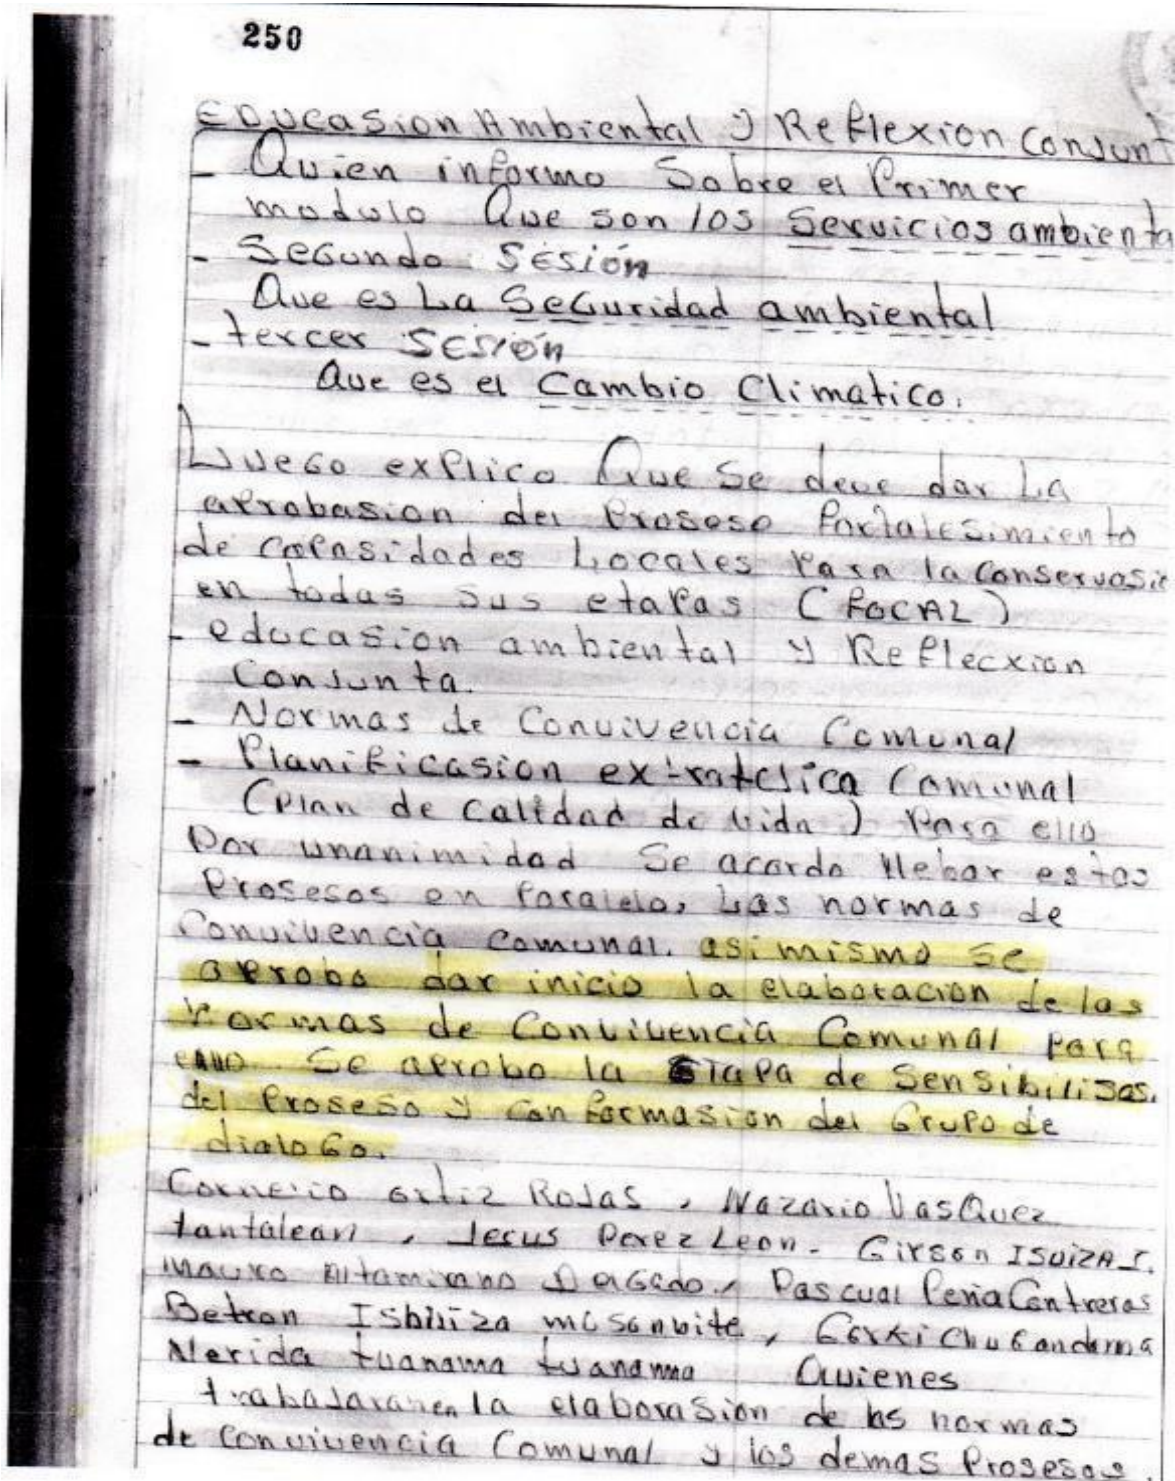 250
EDucasion Ambiental y Reflexion Consunt
- Quien informo Sobre el Primer
modulo Que son los Servicios ambienta
- Segundo Sesión
Que es La Seguridad ambiental
- tercer Sesión
Que es el Cambio Climatico.
Luego explico Que Se deve dar La
aprobasion del Proseso Fortalesimiento
de capasidades Locales Para la Conservasi
en todas sus etapas (FOCAL)
- educasion ambiental y Reflecxion
Consunta.
- Normas de Convivencia Comunal
- Planificasion extratesica Comunal
(Plan de calidad de vida) Para ello
Por unanimidad Se acordo llebar estos
Prosesos en Paralelo, Las normas de
Convibencia comunal. asi mismo se
aprobo dar inicio la elaboracion de las
Normas de Convivencia Comunal para
ello Se aprobo la etapa de Sensibilisas.
del Proseso y Conformasion del Grupo de
dialogo.
Cornerio ortiz Rojas, Nazario VasQuez
tantalean, Jesus Perez Leon. Girson ISuiza I.
Mauro Altamirano Delgado, Pascual Peña Contreras
Betron Isbiiza, Gorki Chu Gandama
Nerida tuanama tuanama Quienes
trabajaran en la elaborasion de las normas
de convivencia Comunal y los demas Prosesos.